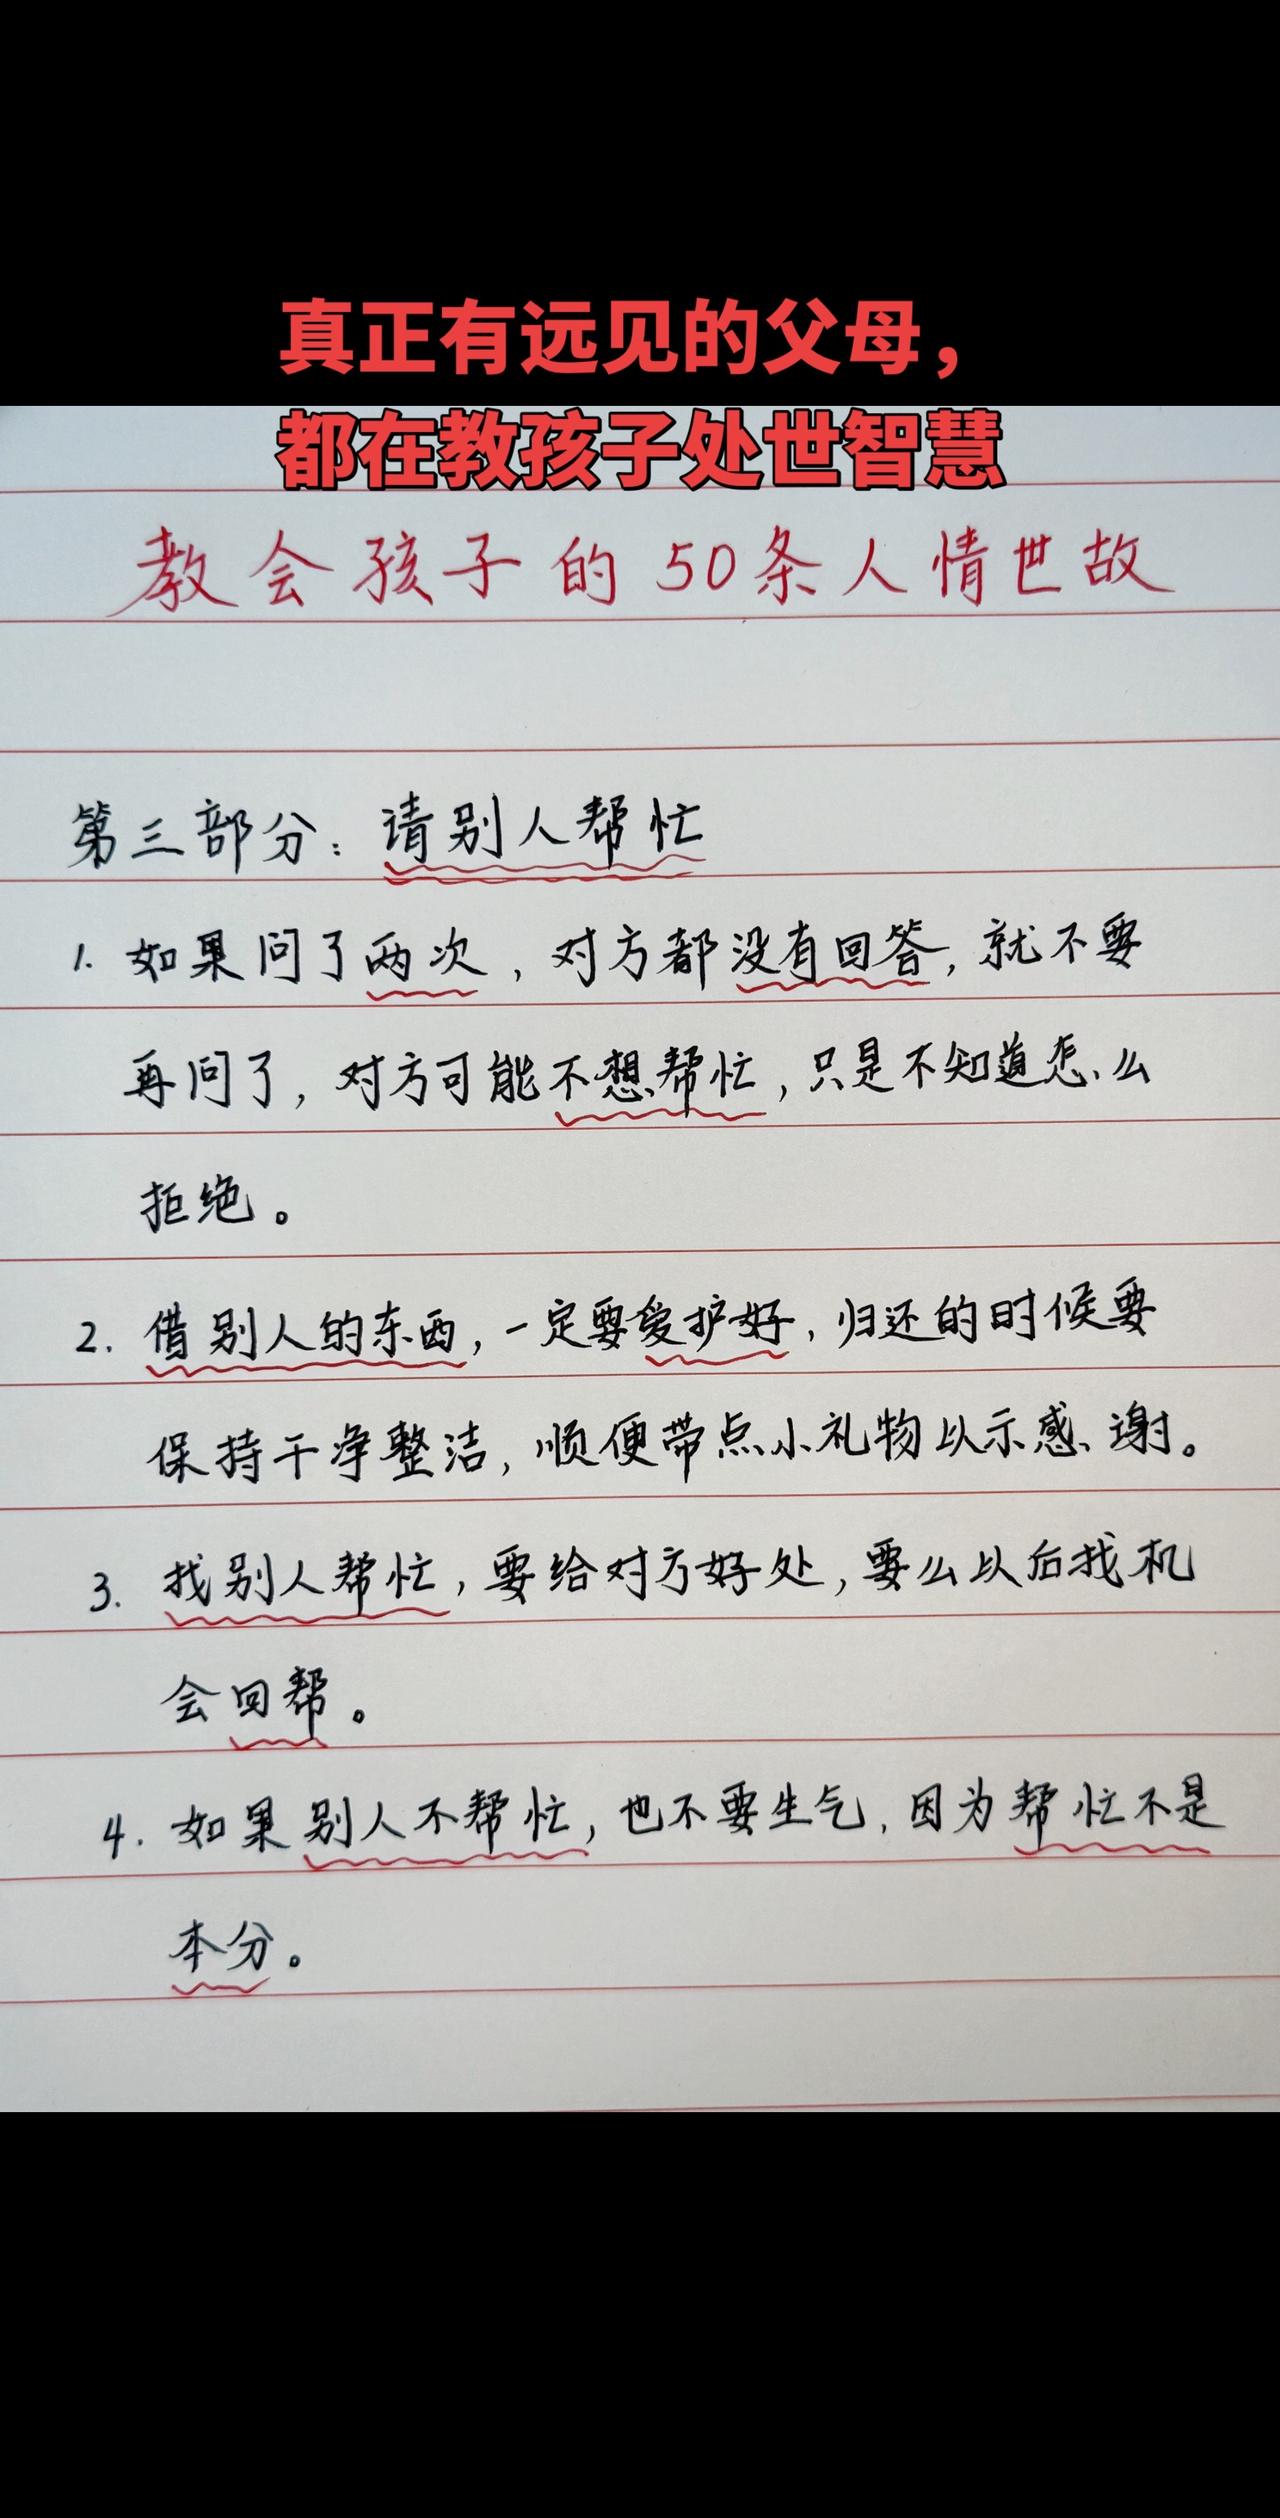 真正有远见的父母，
都在教孩子处世智慧
教会孩子的50条人情世故
第三部分：请别人帮忙
1. 如果问了两次，对方都没有回答，就不要
再问了，对方可能不想帮忙，只是不知道怎么
拒绝。
2. 借别人的东西，一定要爱护好，归还的时候要
保持干净整洁，顺便带点小礼物以示感谢。
3. 找别人帮忙，要给对方好处，要么以后找机
会回帮。
4. 如果别人不帮忙，也不要生气，因为帮忙不是
本分。